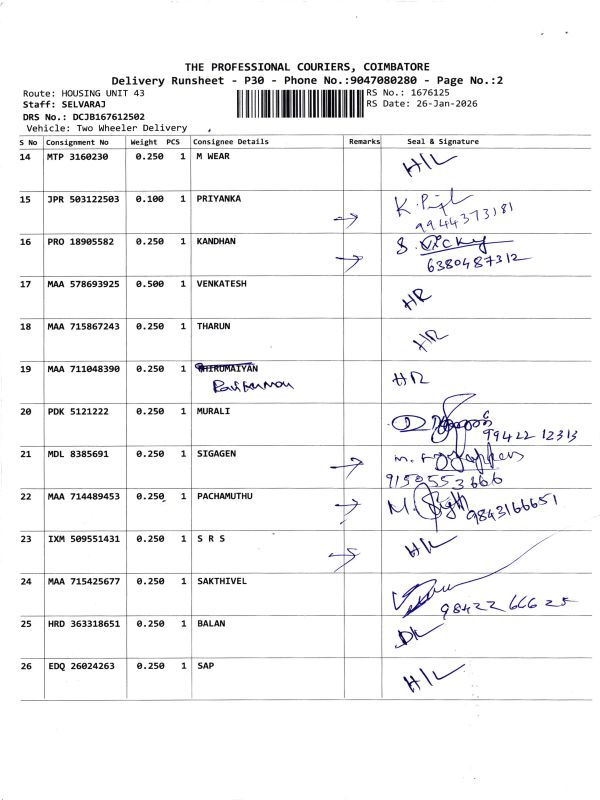 THE PROFESSIONAL COURIERS, COIMBATORE
Delivery Runsheet - P30 - Phone No.:9047080280 - Page No.:2
Route: HOUSING UNIT 43 RS No.: 1676125
Staff: SELVARAJ RS Date: 26-Jan-2026
DRS No.: DCJB167612502
Vehicle: Two Wheeler Delivery
S No Consignment No Weight PCS Consignee Details Remarks Seal & Signature
14 MTP 3160230 0.250 1 M WEAR H/L
15 JPR 503122503 0.100 1 PRIYANKA K.
9944373181
16 PRO 18905582 0.250 1 KANDHAN S. Vicky
6380487312
17 MAA 578693925 0.500 1 VENKATESH HR
18 MAA 715867243 0.250 1 THARUN HR
19 MAA 711048390 0.250 1 THIRUMAIYAN HR
20 PDK 5121222 0.250 1 MURALI
99422 12313
21 MDL 8385691 0.250 1 SIGAGEN M.
9150553666
22 MAA 714489453 0.250 1 PACHAMUTHU M.
9843166651
23 IXM 509551431 0.250 1 S R S H/L
24 MAA 715425677 0.250 1 SAKTHIVEL
98422 66625
25 HRD 363318651 0.250 1 BALAN DL
26 EDQ 26024263 0.250 1 SAP H/L